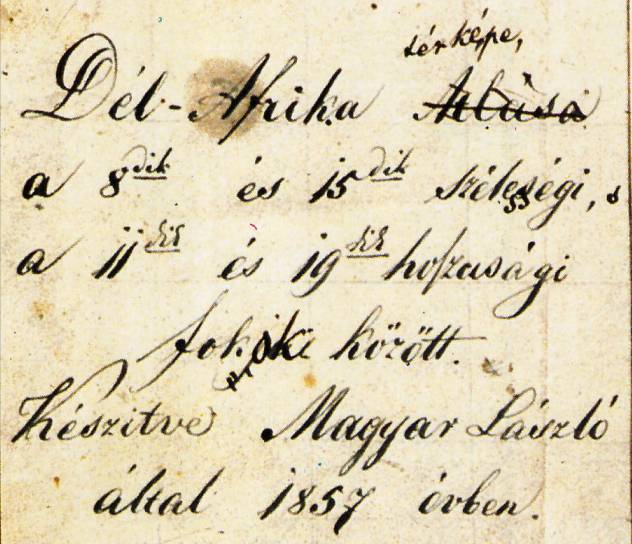 térképe,
Dél-Afrika Atlása
a 8dik és 15dik szélességi, s
a 11dik és 19dik hoszasági
fokok között.
Készitve Magyar László
által 1857 évben.